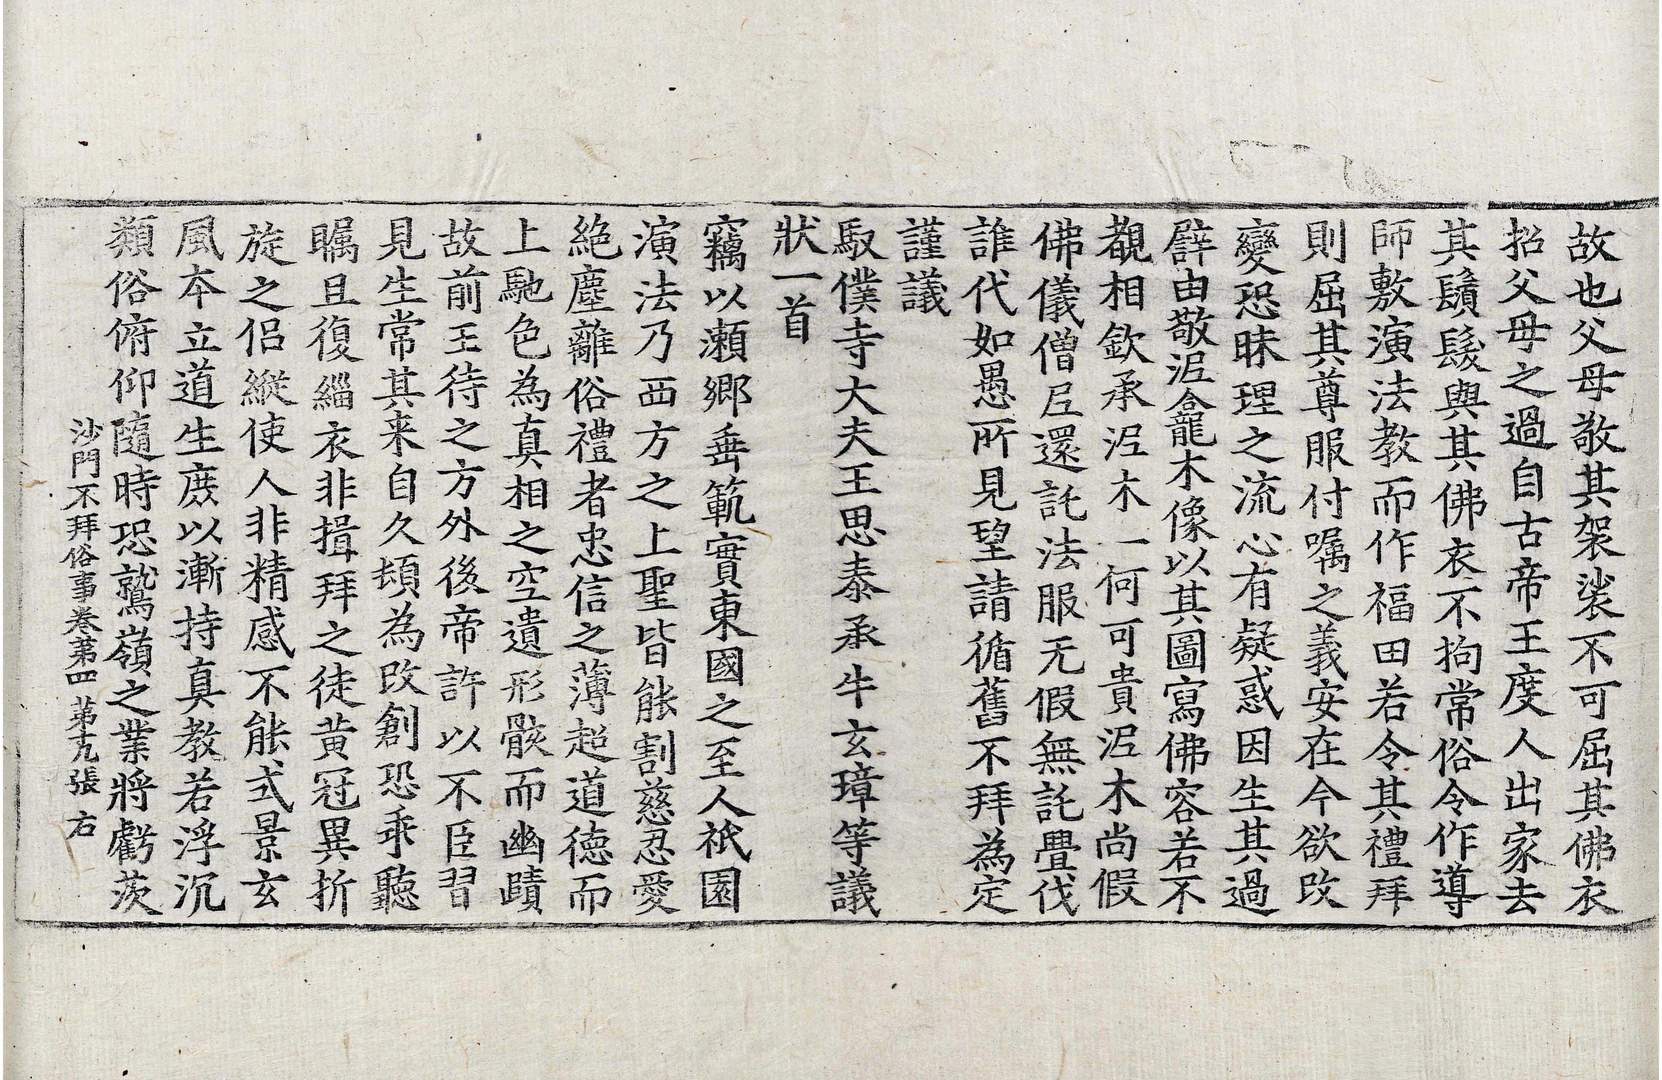 故也父母敬其袈裟不可屈其佛衣
招父母之過自古帝王度人出家去
其鬚髮與其佛衣不拘常俗令作導
師敷演法教而作福田若令其禮拜
則屈其尊服付嘱之義安在今欲改
變恐昧理之流心有疑惑因生其過
譬由敬泥龕龍木像以其圖寫佛容若不
覩相欽承泥木一何可貴泥木尚假
佛儀僧尼還託法服无假無託疊伐
誰代如愚所見望請循舊不拜為定
謹議
馭僕寺大夫王思泰承牛玄璋等議
狀一首
竊以瀬鄉垂範實東國之至人祇園
演法乃西方之上聖皆能割慈忍愛
絶塵離俗禮者忠信之薄超道德而
上馳色為真相之空遺形骸而幽蹟
故前王待之方外後帝許以不臣習
見生常其来自久頓為改創恐乖聽
矚且復緇衣非揖拜之徒黃冠異折
旋之侶縱使人非精感不能式景玄
風夲立道生庶以漸持真教若浮沉
類俗俯仰隨時恐鷲嶺之業將虧茨
沙門不拜俗事卷苐四 苐十九張 右